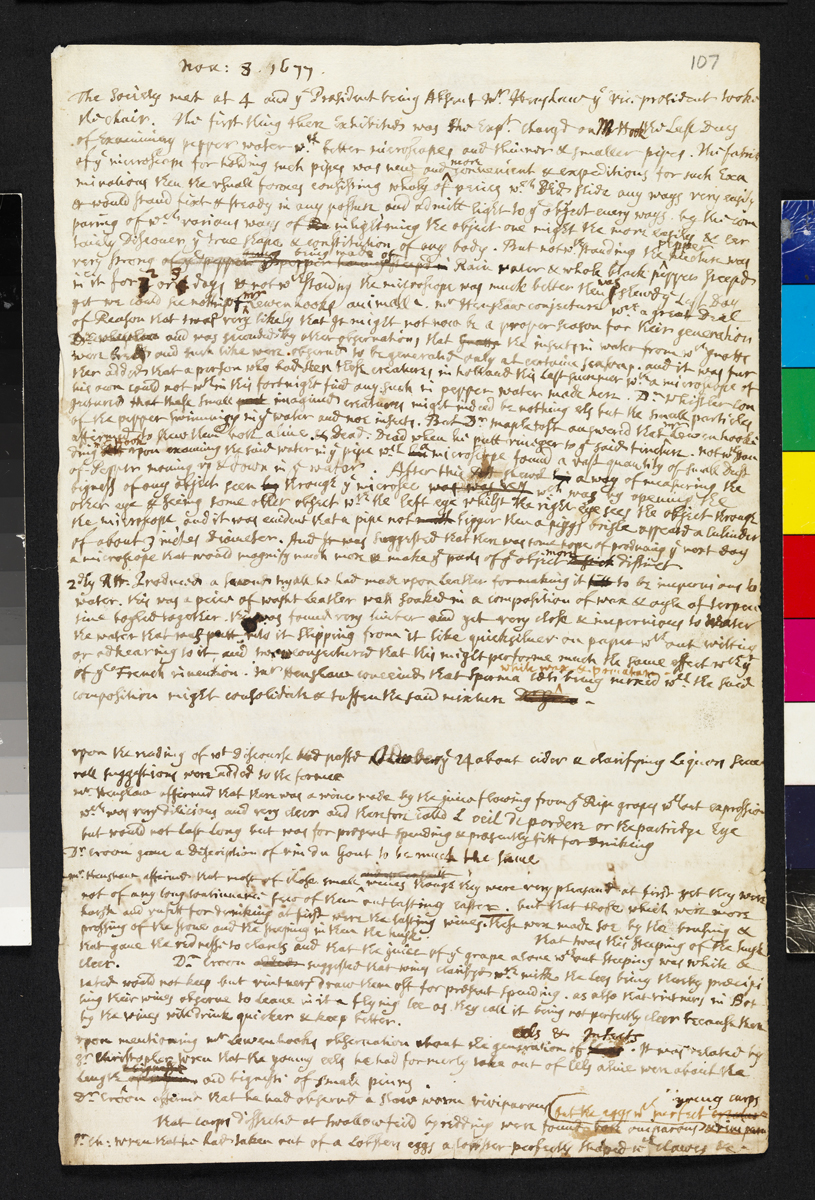 107
Nou: 8. 1677.
The Society met at 4 and ye President being Absent Mr. Henshaw ye vice president tooke
the chair. The first thing there Exhibited was the Expt. chargd on Mr Hook the Last Day
of Examining pepper water wth better microscopes and thinner & smaller pipes. The fabrick
of ye microscope for holding such pipes was new and more convenient & expeditious for such Exa
minations then the rest all formes consisting wholy of peices wch Did slide any ways very easily
& would stand fixt & steady in any posture and admitt light to ye object every way. by the com
paring of wch various ways of inlightning the object one might the more easily & cer
tainly Discouer ye true shape & constitution of any body. But notwthstanding the pepper mixture was
very strong being made of Rain water & whole black pepper steepd
in it for 2 or 3 days & notwthstanding the microscope was much better then was shewd ye Last Day
yet we could see nothing of mr Lewenhooks animall. mr Henshaw conjectured wth a great Deal
of Reason that twas very likely that It might not now be a proper season for their generation
and was seconded by other obseruations that the insects in water from wch gnatts
were bred and such like were obserud to be generated only at certaine seasons. and it was fur
ther added that a person who had seen those creatures in holland this last summer wth a microscope of
his own could not wthin this fortnight find any such in pepper water made here. Dr. Whistler con
jectured that these small imagined creatures might indeed be nothing els but the small particles
of the pepper swimming in ye water and not insects. But Dr mapletoft answerd that mr Lewenhooke
affirmed to shew them both aliue & Dead: Dead when he putt vineger to ye said tincture. notwthstan
ding upon examining the said water in ye pipe wth microscope found a vast quantity of small Dust
of Pepper mouing up & down in ye water. After this shewd a way of measuring the
bigness of any object seen through ye microscope wch was by opening the
other eye & seeing some other object wth the left eye whilst the right eye sees the object through
the microscope, and it was euident that a pipe not bigger then a piggs brisle appeard a Cilinder
of about 3 inches Diameter. And It was suggested that there was some hope of producing ye next day
a microscope that would magnify much more & make ye parts of ye object more distinct
2dly Mr. H produced a second tryall he had made upon Leather for making it to be imperuious to
water. this was a piece of washt Leather well soaked in a composition of wax & oyle of terpen
tine boyled together. this was found very limber and yet very close & imperuious to water
the water that was putt into it slipping from it like quicksiluer on paper wthout wetting
or adhearing to it and conjectured that this might performe much the same effect wth yt
of ye French inuention. mr Henshaw conceiud that sperma Ceti being mixed wth the said
composition might consolidate & stiffen the said mixture
upon the reading of wt discourse had passed 24 about cider & clarifying Liquors seue
rall suggestions were added to the former
mr Henshaw affirmed that there was a wine made by the juice flowing from ye Ripe grapes wthout expression
wch was very dilicious and very cleer and therefore calld L oeil De perderex or the partridge Eye
but would not last long but was for present spending & presently fitt for drinking
Dr. Croon gaue a Discription of vin du Gout to be much the same
mr Henshaw affirmd that most of those small wines though they were very pleasant at first yet they were
not of any long continuance few of them outlasting Easter. but that those which were more
harsh and unfitt for drinking at first were the lasting wines. these were made soe by the brusing &
pressing of the stones and the steeping in them the huske. that twas the steeping of the husk
that gaue the redness to clarets and that the juice of ye grape alone wthout steeping was white &
cleer. Dr. Croon suggested that wines clarifyd wth milk the Lees being therby precipi
tated would not keep but vintners draw them off for present spending. as also that vintners in Bot
ling their wines obserue to leaue in it a flying lee as they call it being not perfectly cleer because then
by the wines will drink quicker & keep better.
upon mentioning mr Lewenhooks obseruation about the generation of eels & Insects. It was related by
Sr. Christopher Wren that the young eels he had formerly take out of Eels aliue were about the
Length and bigness of small pinns.
Dr Croon affirmd that he had obserued a slow worm viuiparous but the eggs wth perfect young carps
that carps dissected at swallowfeild by redding were found
Sr. Ch: wren that he had taken out of a Lobster eggs a lobster perfectly shaped wth clawes &c.